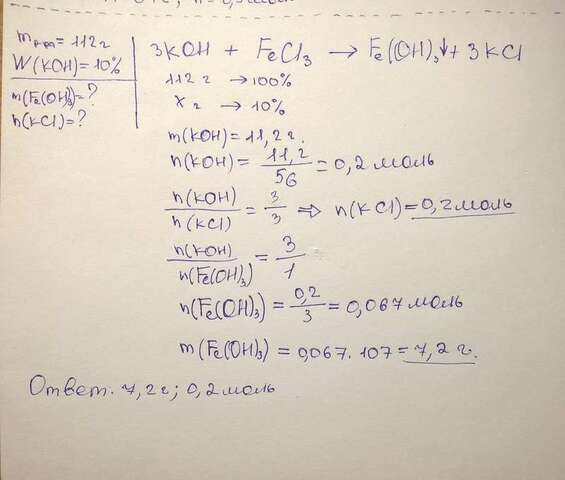 m р-ра = 112 г
W(KOH) = 10%
m(Fe(OH)₃) = ?
n(KCl) = ?
3KOH + FeCl₃ → Fe(OH)₃↓ + 3KCl
112 г → 100%
x г → 10%
m(KOH) = 11,2 г.
n(KOH) = 11,2/56 = 0,2 моль
n(KOH)/n(KCl) = 3/3 ⇒ n(KCl) = 0,2 моль
n(KOH)/n(Fe(OH)₃) = 3/1
n(Fe(OH)₃) = 0,2/3 = 0,067 моль
m(Fe(OH)₃) = 0,067 · 107 = 7,2 г.
Ответ: 7,2 г; 0,2 моль